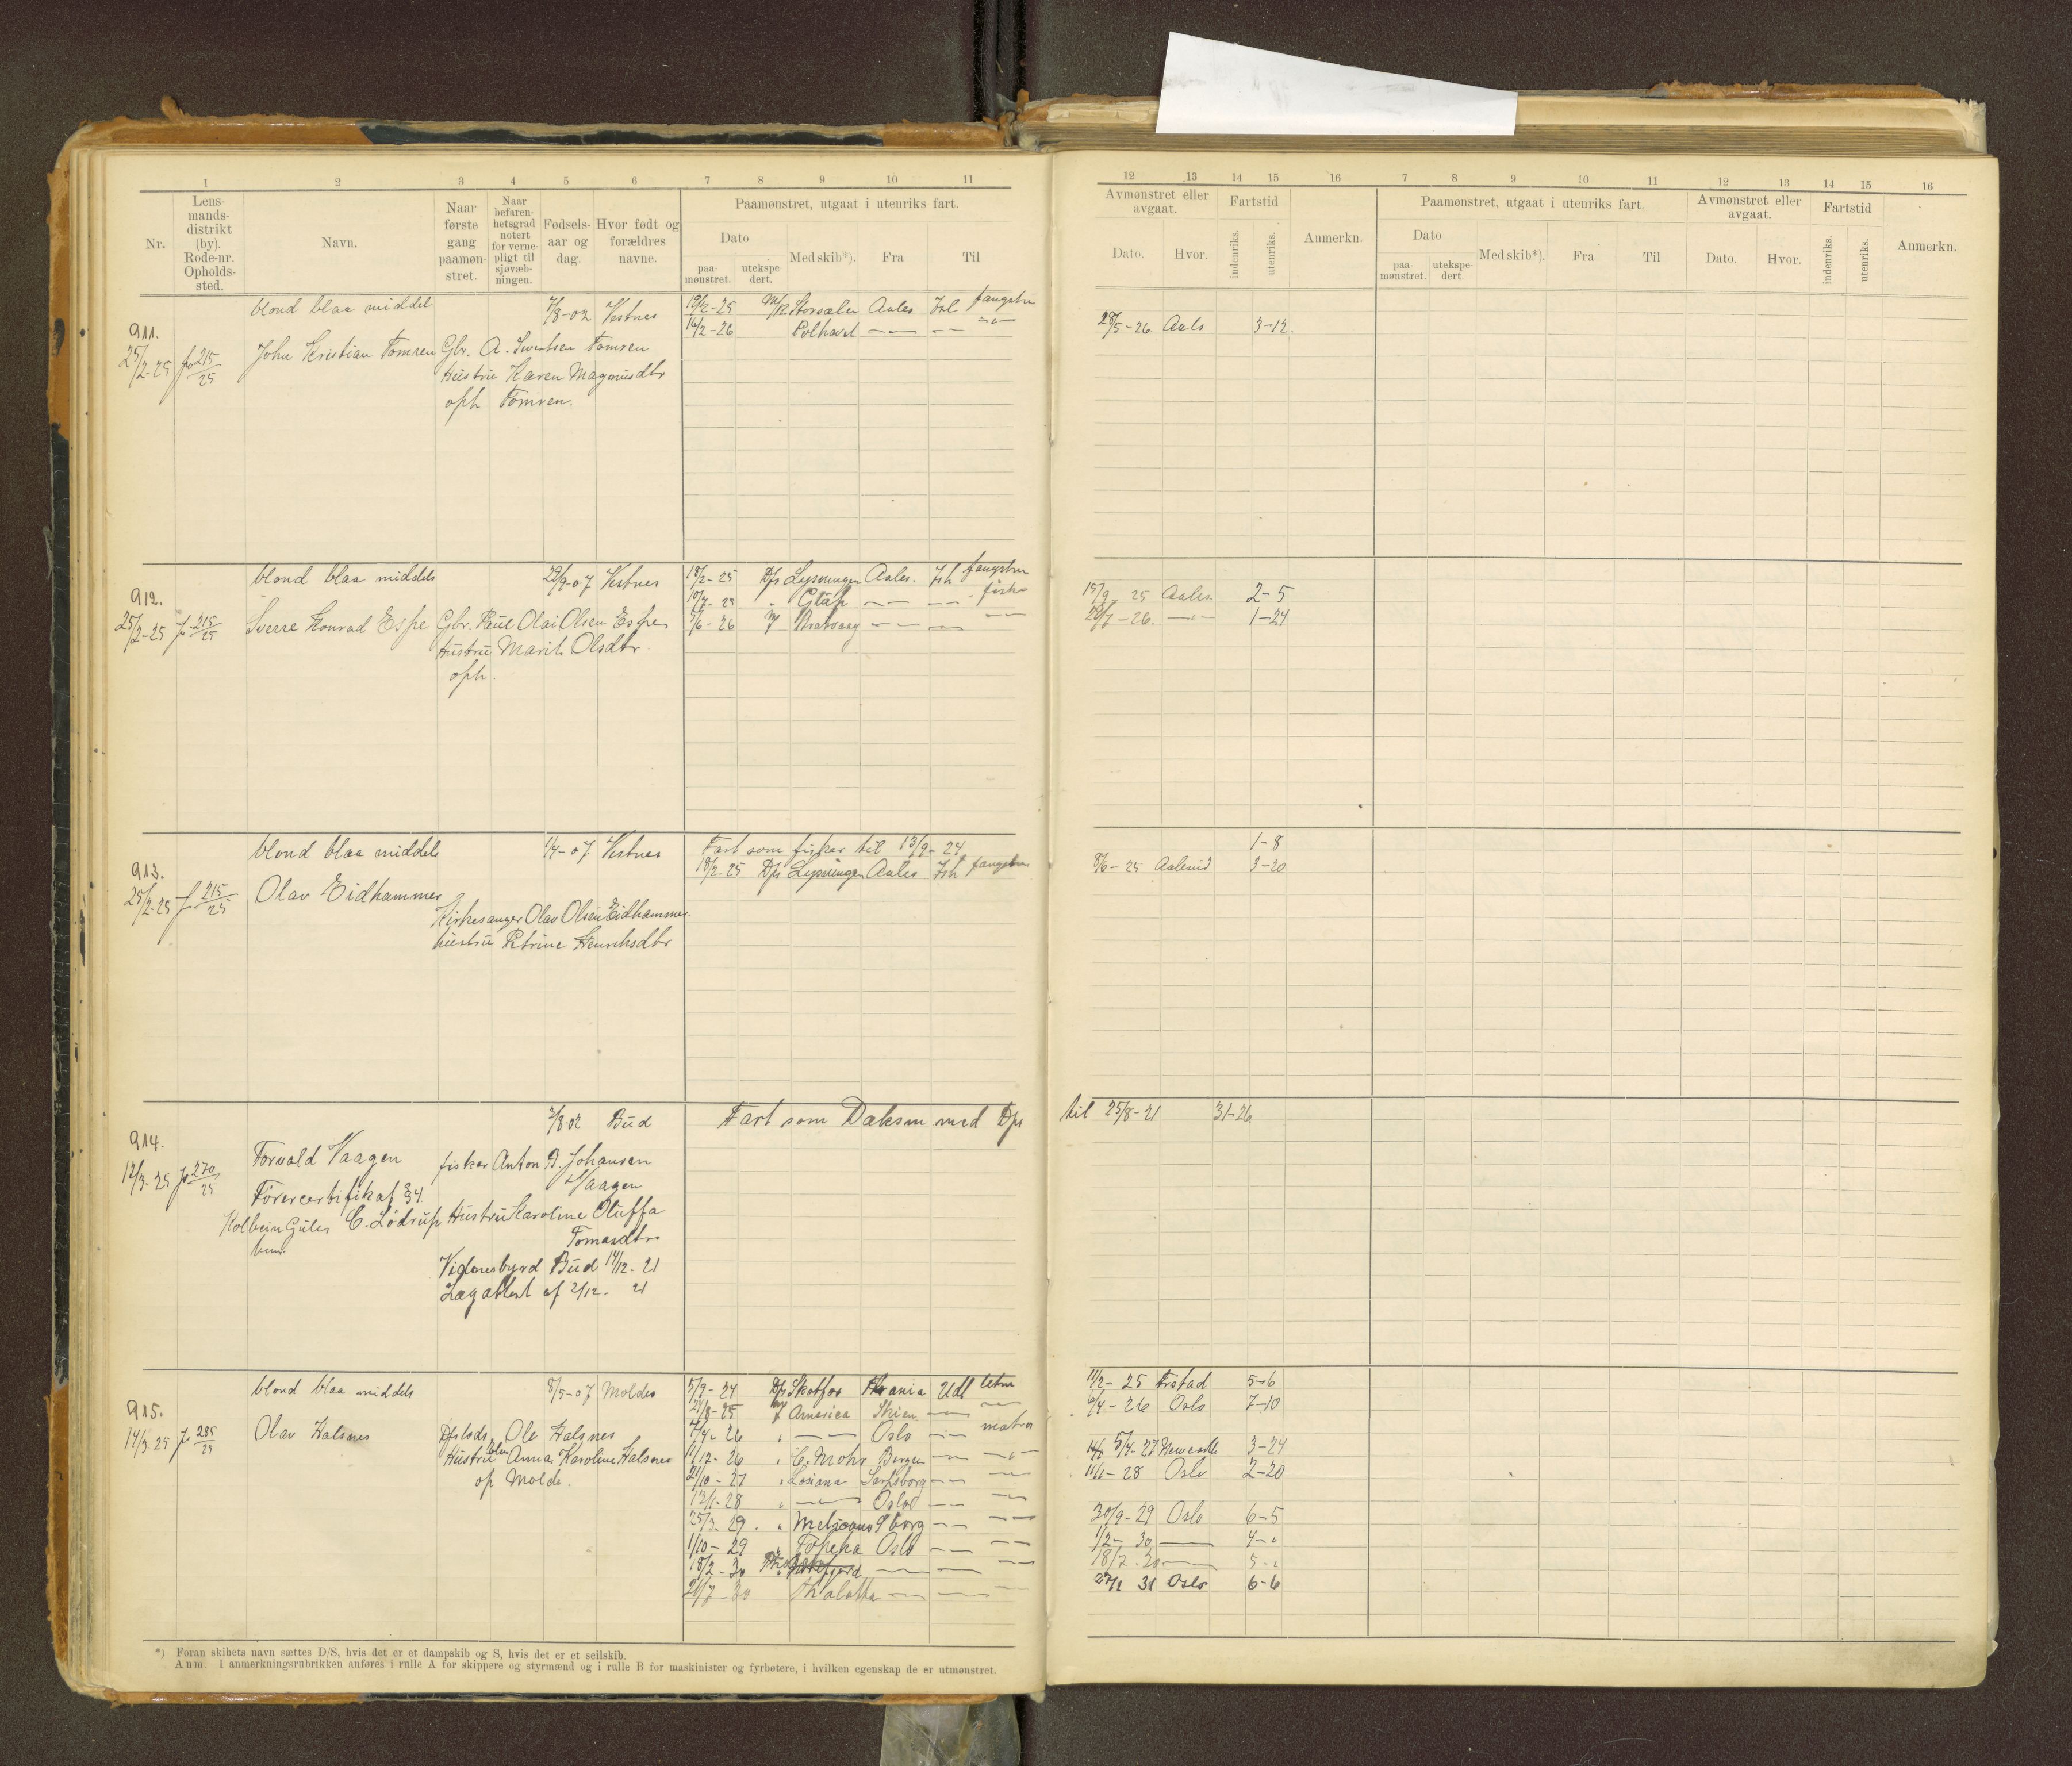 1 2 3 4 5 6 7 8 9 10 11
Nr.
Lens-
mands-
distrikt
(by).
Rode-nr.
Opholds-
sted.
Navn.
Naar
første
gang
paamøn-
stret.
Naar
befaren-
hetsgrad
notert
for verne-
pligt til
sjøvæb-
ningen.
Fødsels-
aar og
dag.
Hvor født og
forældres
navne.
Paamønstret, utgaat i utenriks fart.
Dato
paa-
mønstret.
utekspe-
dert.
Med skib*).
Fra
Til
12 13 14 15 16 7 8 9 10 11 12 13 14 15 16
Avmønstret eller
avgaat.
Dato.
Hvor.
Fartstid
indenriks.
utenriks.
Anmerkn.
Paamønstret, utgaat i utenriks fart.
Dato
paa-
mønstret.
utekspe-
dert.
Med skib*).
Fra
Til
Avmønstret eller
avgaat.
Dato.
Hvor.
Fartstid
indenriks.
utenriks.
Anmerkn.
911.
25/2-25 215/25
blond blaa middel 7/8-02 Vestnes
John Kristian Tomren Gbr. A. Tomren
Hustru Karen Magnusdtr
oph Tomren.
19/2-25 M/K Storsælen Aales fangstm
16/2-26 Polhavet — —
28/5-26 Aals 3-12.
912.
25/2-25 215/25
blond blaa middels 29/9-07 Vestnes
Sverre Konrad Espe Gbr. Olai Olsen Espe
Hustru Marit Olsdtr.
oph.
18/2-25 D/s Lysningen Aales. Ish fangstm
10/7-25 " — — fisker
5/6-26 — — —
15/9 25 Aales. 2-5
28/7-26. —"— 1-24
913.
25/2-25 215/25
blond blaa middels 1/4-07 Vestnes
Olav Eidhammer
Kirkesanger Olav Olsen Eidhammer
hustru Petrine Henriksdtr
Fart som fisker til 13/9-24
18/2-25 D/s Lysningen Aales Ish fangstm
1-8
8/6-25 Aalesund 3-20
914.
12/3-25 270/25
2/8 02 Bud
Torvald Vaagen fisker Anton B. Johansen
Vaagen
Førercertifikat
C. Lødrup Hustru Karoline Oluffa
Tomasdtr
Bud 14/12-21
Lægattest af 2/12-21
Fart som Dæksm med D/s
til 25/8-21 31-26
915.
14/3-25 285/25
blond blaa middels 8/5-07 Molde
Olav Halsnes D/slods Ole Halsnes
Hustru Anna Karoline Halsnes
op Molde.
5/9-24 D/s Skotfos Udl
America Skien —
— Oslo — matros
11/12-26 " C. Mohr Bergen — —"—
21/10-27 " Sarpsborg — —
13/1-28 " — Oslo — —
25/3-29. " S borg — —
1/10-29 " Topeka Oslo — —
18/2-30 — — —
21/7-30 Thalatta — —
11/2-25 Frstad 5-6
6/4-26 Oslo 7-10
5/4-27 Newcastle 3-24
28 Oslo 2-20
30/9-29 Oslo 6-5
1/2-30 — 4-"
18/7-30 — 5-"
31 Oslo 6-6
*) Foran skibets navn sættes D/S, hvis det er et dampskib og S, hvis det er et seilskib.
Anm. I anmerkningsrubrikken anføres i rulle A for skippere og styrmænd og i rulle B for maskinister og fyrbøtere, i hvilken egenskap de er utmønstret.